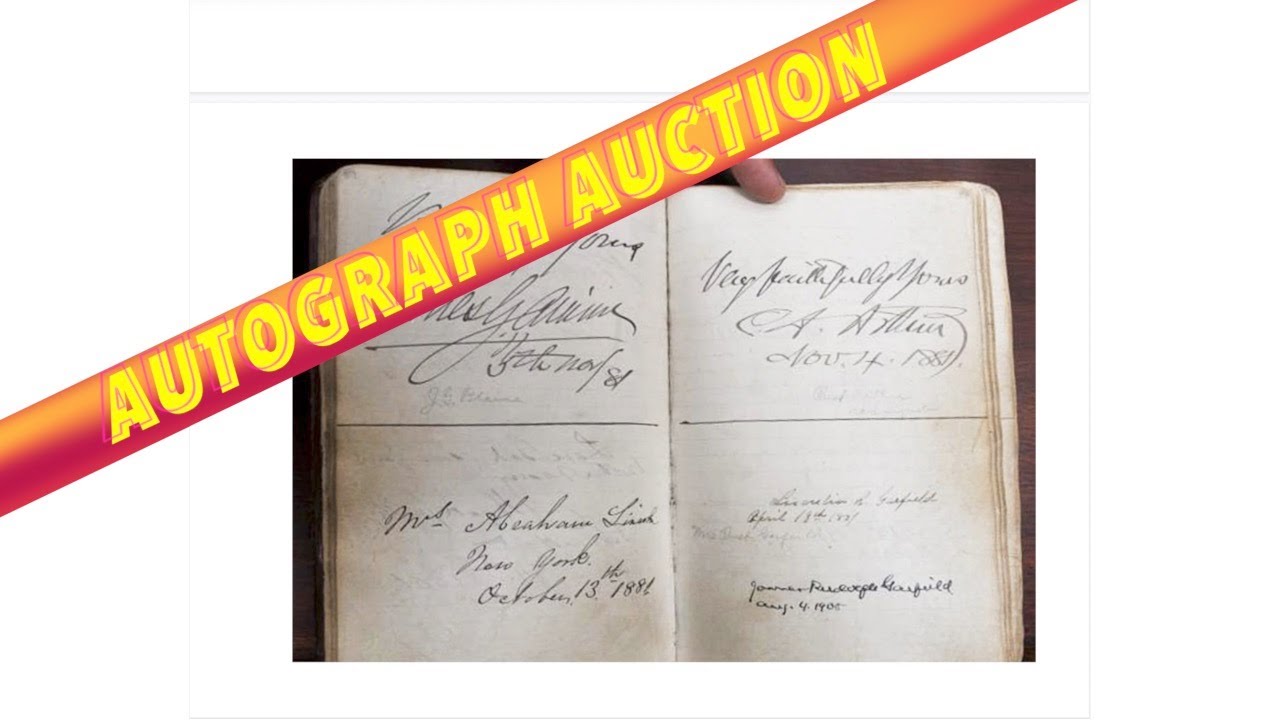 AUTOGRAPH AUCTION
Yours
5th Nov/81
J.G. Blaine
Very faithfully Yours
C. A. Arthur
Nov. 4. 1881.
Mrs Abraham
New York.
October, 13th 1881
Lucretia R. Garfield
April 13th 1881
James Rudolph Garfield
Aug. 4. 1905